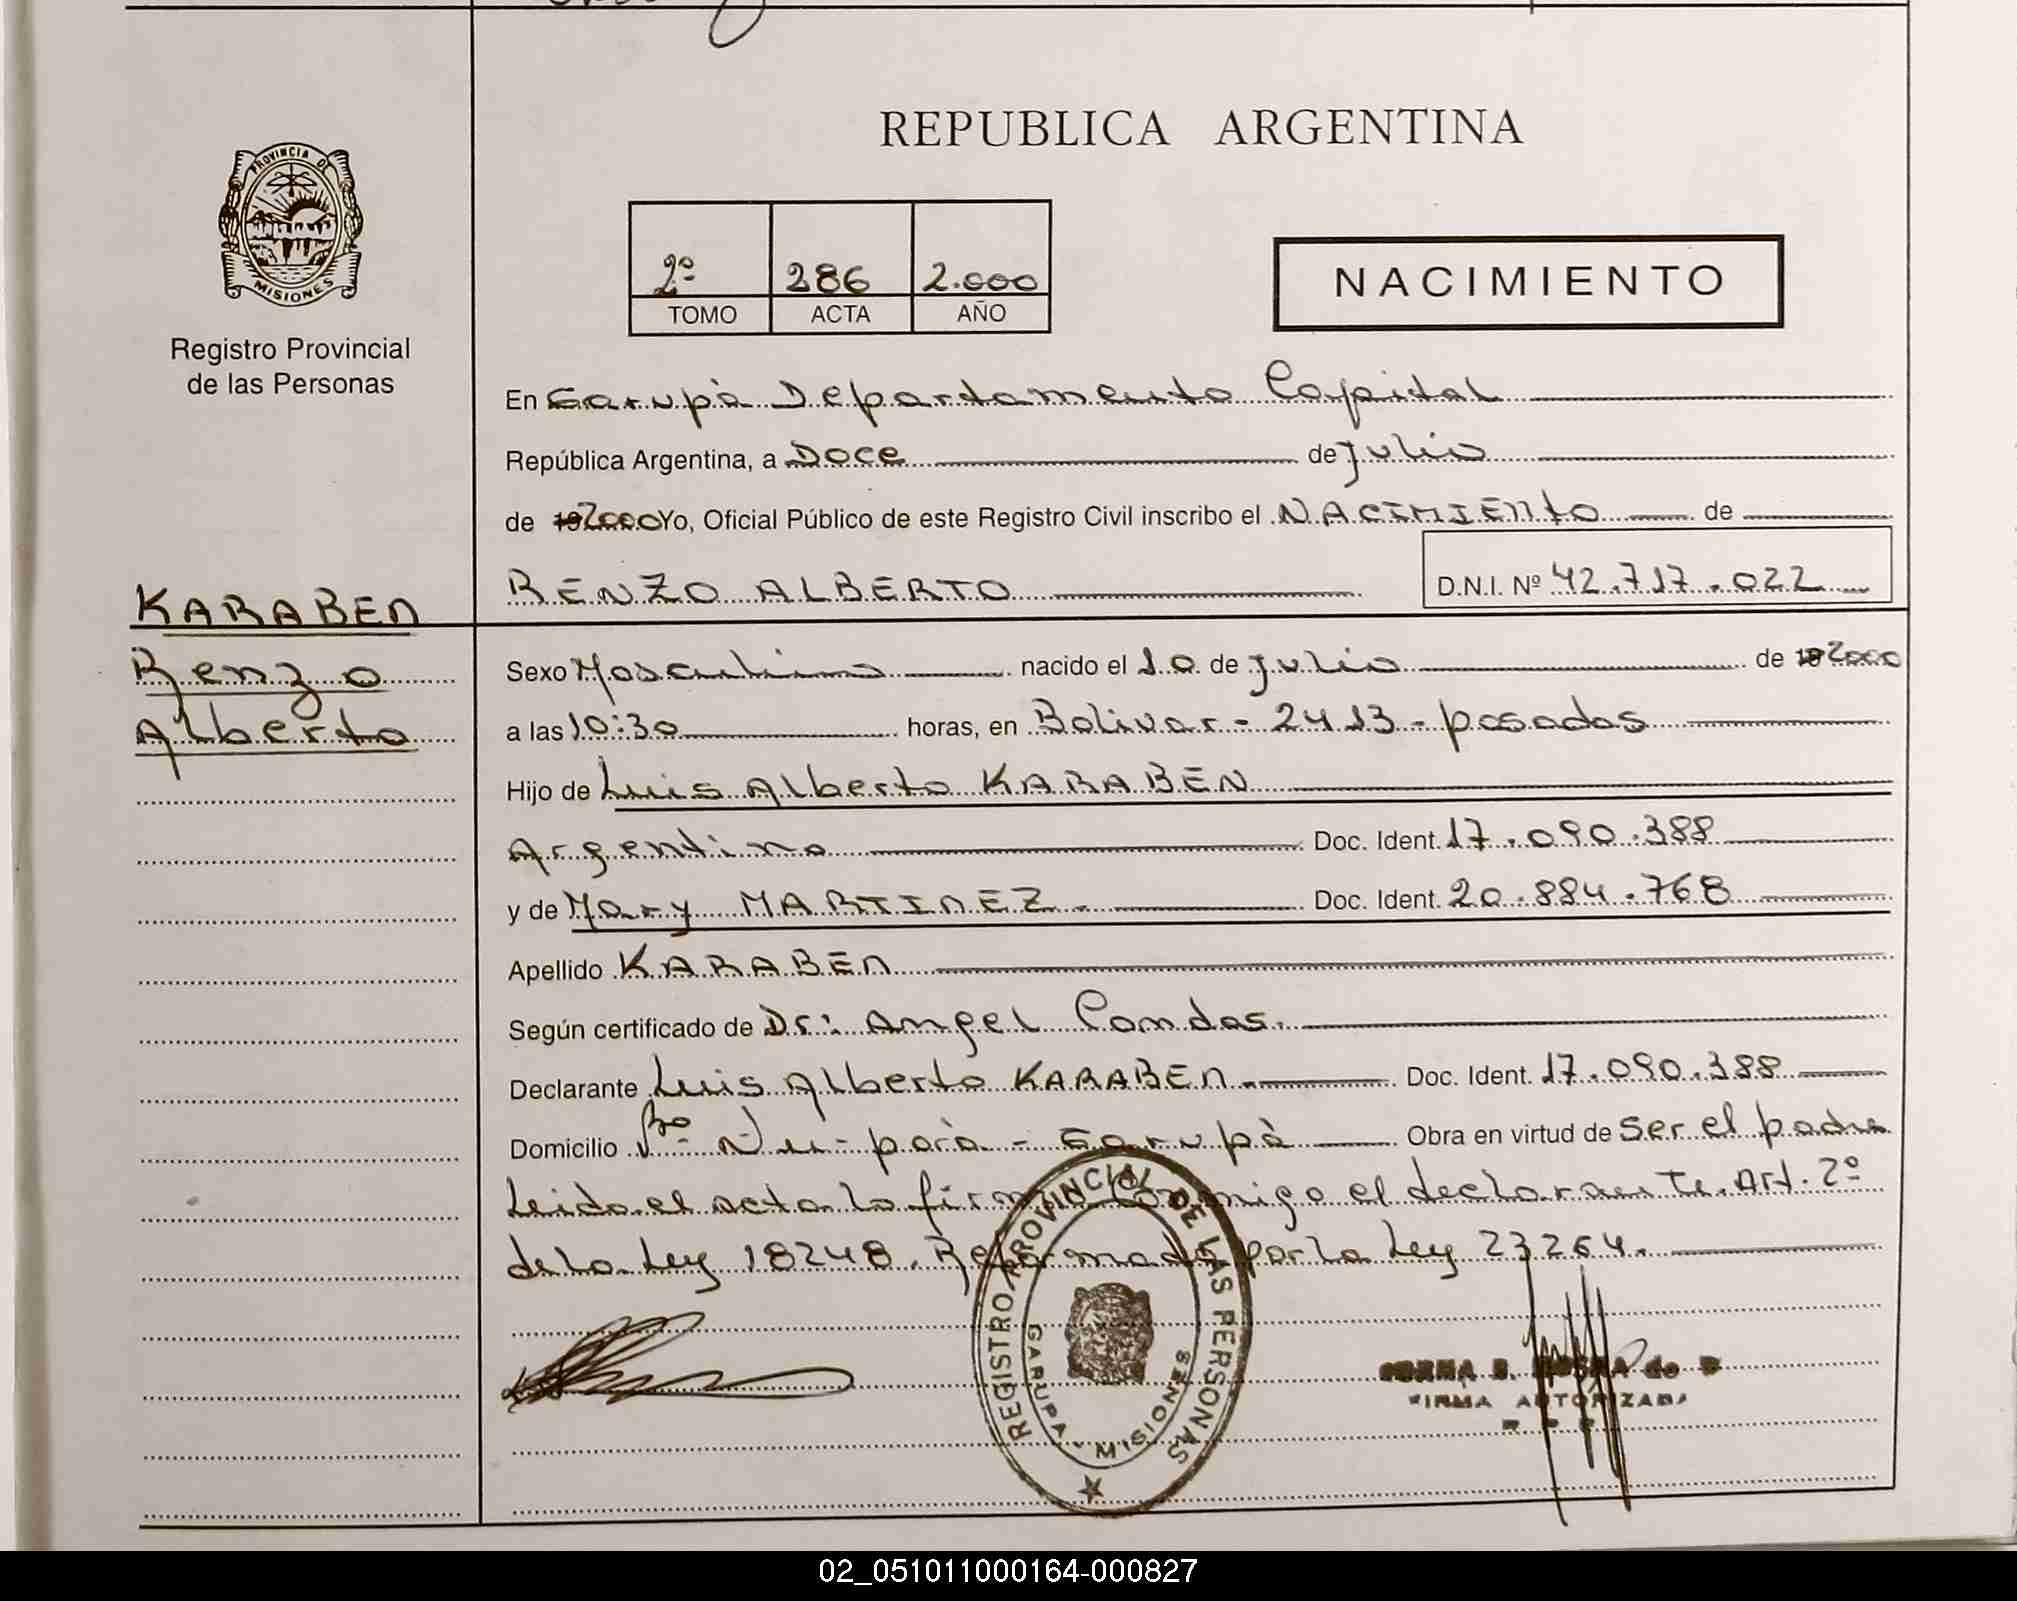 REPUBLICA ARGENTINA
PROVINCIA DE
MISIONES
Registro Provincial
de las Personas
2º 286 2.000
TOMO ACTA AÑO
NACIMIENTO
En Garupà Departamento Capital
República Argentina, a Doce de Julio
de 192000 Yo, Oficial Público de este Registro Civil inscribo el NACIMIENTO de
RENZO ALBERTO D.N.I. Nº 42.717.022
KARABEN
Renzo
Alberto
Sexo Masculino nacido el 10 de Julio de 192000
a las 10:30 horas, en Bolivar - 2413 - posadas
Hijo de Luis Alberto KARABEN
Argentino Doc. Ident. 17.090.388
y de Mary MARTINEZ. Doc. Ident. 20.884.768
Apellido KARABEN
Según certificado de Dr: Angel Condas.
Declarante Luis Alberto KARABEN Doc. Ident. 17.090.388
Domicilio Bº Ñu-porà - Garupà Obra en virtud de Ser el padre
Leida el acta la firma Conmigo el declarante. Art. 2º
de la Ley 18248. Reformada por la Ley 23264.
REGISTRO PROVINCIAL DE LAS PERSONAS
GARUPA - MISIONES
FIRMA AUTORIZADA
02_051011000164-000827